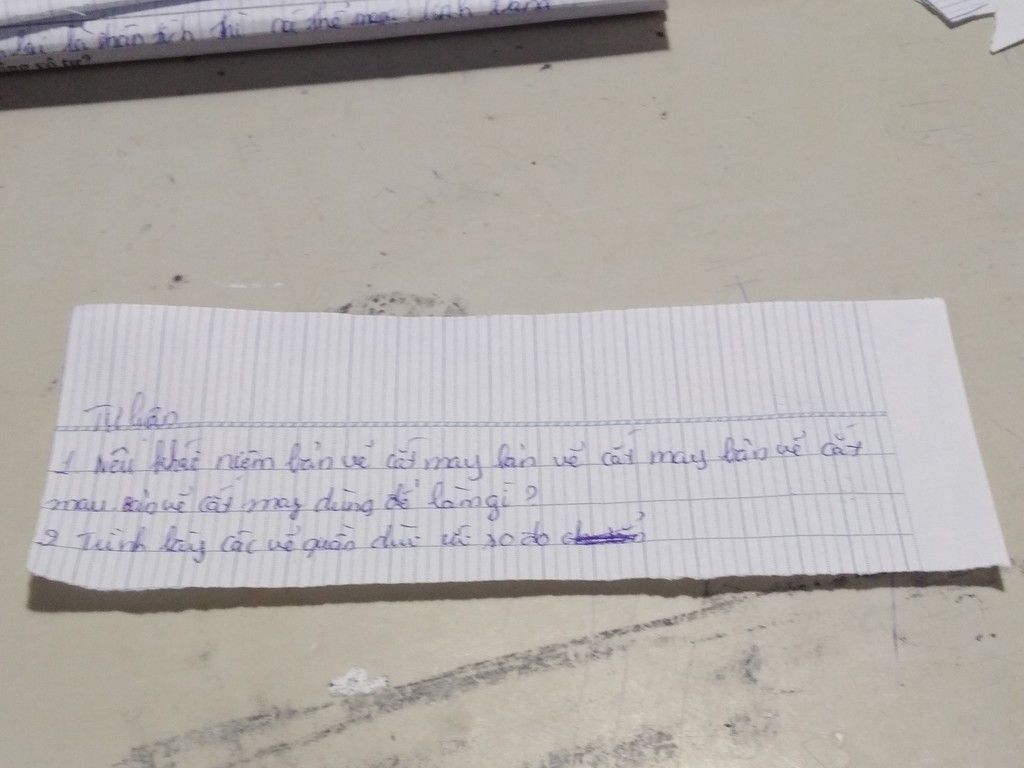 lại là phân tích thì có thể mọi
Tự luận
1 Nêu khái niệm bản vẽ cắt may bản vẽ cắt may bản vẽ cắt
may bản vẽ cắt may dùng để làm gì ?
2 Trình bày các vẽ quần đùi với số đo